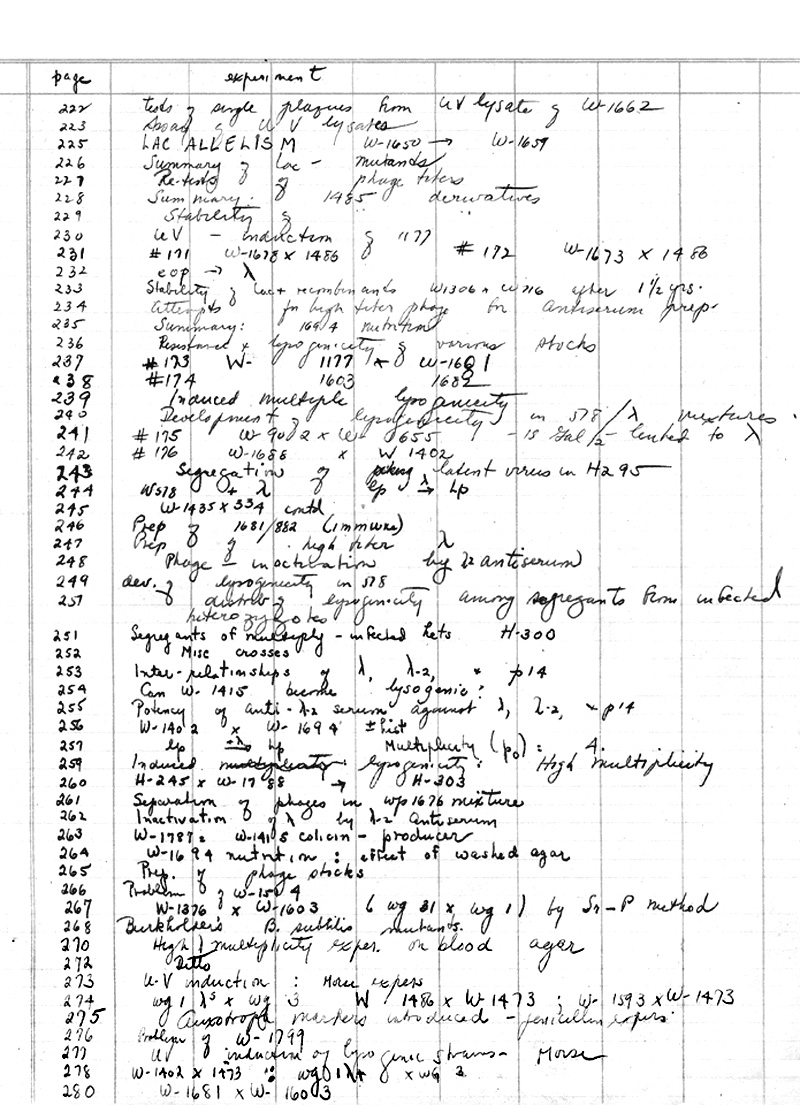 page experiment
222 tests of single plaques from UV lysate of W-1662
223 Assay of UV lysates
225 LAC ALLELISM W-1650 → W-1659
226 Summary of Lac- mutants
227 Re-tests of phage titers
228 Summary: 1485 derivatives
229 Stability of " "
230 UV - induction of 1177
231 #171 W-1678 x 1486 #172 W-1673 x 1486
232 eop → λ
233 Stability of Lac+ recombinants W1306 x W716 after 1 1/2 yrs.
234 Attempts for high titer phage for antiserum prep.
235 Summary: 1694 nutrition
236 Resistance x lysogenicity of various stocks
237 #173 W- 1177 x W-1601
238 #174 1603 1682
239 Induced multiple lysogenicity
240 Development of lysogenicity in 578/λ mixtures.
241 #175 W-902 x W-655 - is Gal/2- linked to λ
242 #176 W-1688 x W 1402
243 Segregation of latent virus in H295
244 W578 + λ lp → Lp
245 W-1435 x 334 contd
246 Prep of 1681/882 (immune)
247 Prep of high titer λ
248 Phage - inactivation by λ2 antiserum
249 dev. of lysogenicity in 578
251 of distrib of lysogenicity among segregants from infected
heterozygotes
251 Segregants of multiply-infected hets H-300
252 Misc crosses
253 Inter-relationships of λ, λ-2, + p14
254 Can W-1415 become lysogenic?
255 Potency of anti-λ-2 serum against λ, λ-2, + p14
256 W-1402 x W-1694 ± hist
257 lp +λ→ Lp Multiplicity (p0) : 4.
259 Induced multiplicity lysogenicity: High multiplicity
260 H-245 x W-1788 → H-303
261 Separation of phages in wp1676 mixture
262 Inactivation of λ by λ-2 Antiserum
263 W-1787: W-1415 colicin-producer
264 W-1694 nutrition: effect of washed agar
265 Prep. of phage stocks
266 Problem of W-1504
267 W-1376 x W-1603 (wg 31 x wg 1) by Sr-P method
268 Burkholder's B. subtilis mutants.
270 High multiplicity exper. on blood agar
272 Ditto
273 UV induction: Morse expers
274 wg 1 λs x wg 3 W 1486 x W-1473; W-1593 x W-1473
275 Auxotroph markers introduced - penicillin expers.
276 Problem of W-1799
277 UV induction of lysogenic strains - Morse
278 W-1402 x 1473 :: wg 1 λ+ x wg 3
280 W-1681 x W-1603